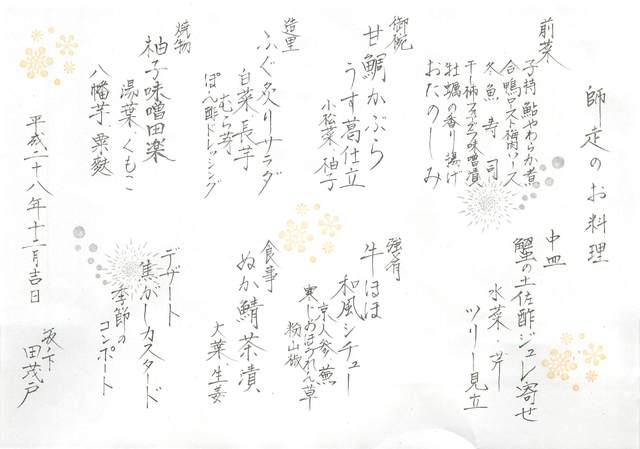 師走のお料理
前菜
子持鮎やわらか煮
合鴨ロース梅肉ソース
冬魚寿司
干柿フォアグラ味噌漬
牡蠣の香り揚げ
おたのしみ
御椀
甘鯛かぶら
うす葛仕立
小松菜・柚子
造里
ふぐ炙りサラダ
白菜・長芋
むら芽
ぽん酢ドレッシング
焼物
柚子味噌田楽
湯葉・くもこ
八幡芋・粟麩
中皿
蟹の土佐酢ジュレ寄せ
水菜・
ツリー見立
強肴
牛ほほ
和風シチュー
京人参・蕪
寒じめほうれん草
粉山椒
食事
ぬか鯖茶漬
大葉・生姜
デザート
焦がしカスタード
季節の
コンポート
平成二十八年十二月吉日
坂ノ下
田茂戸